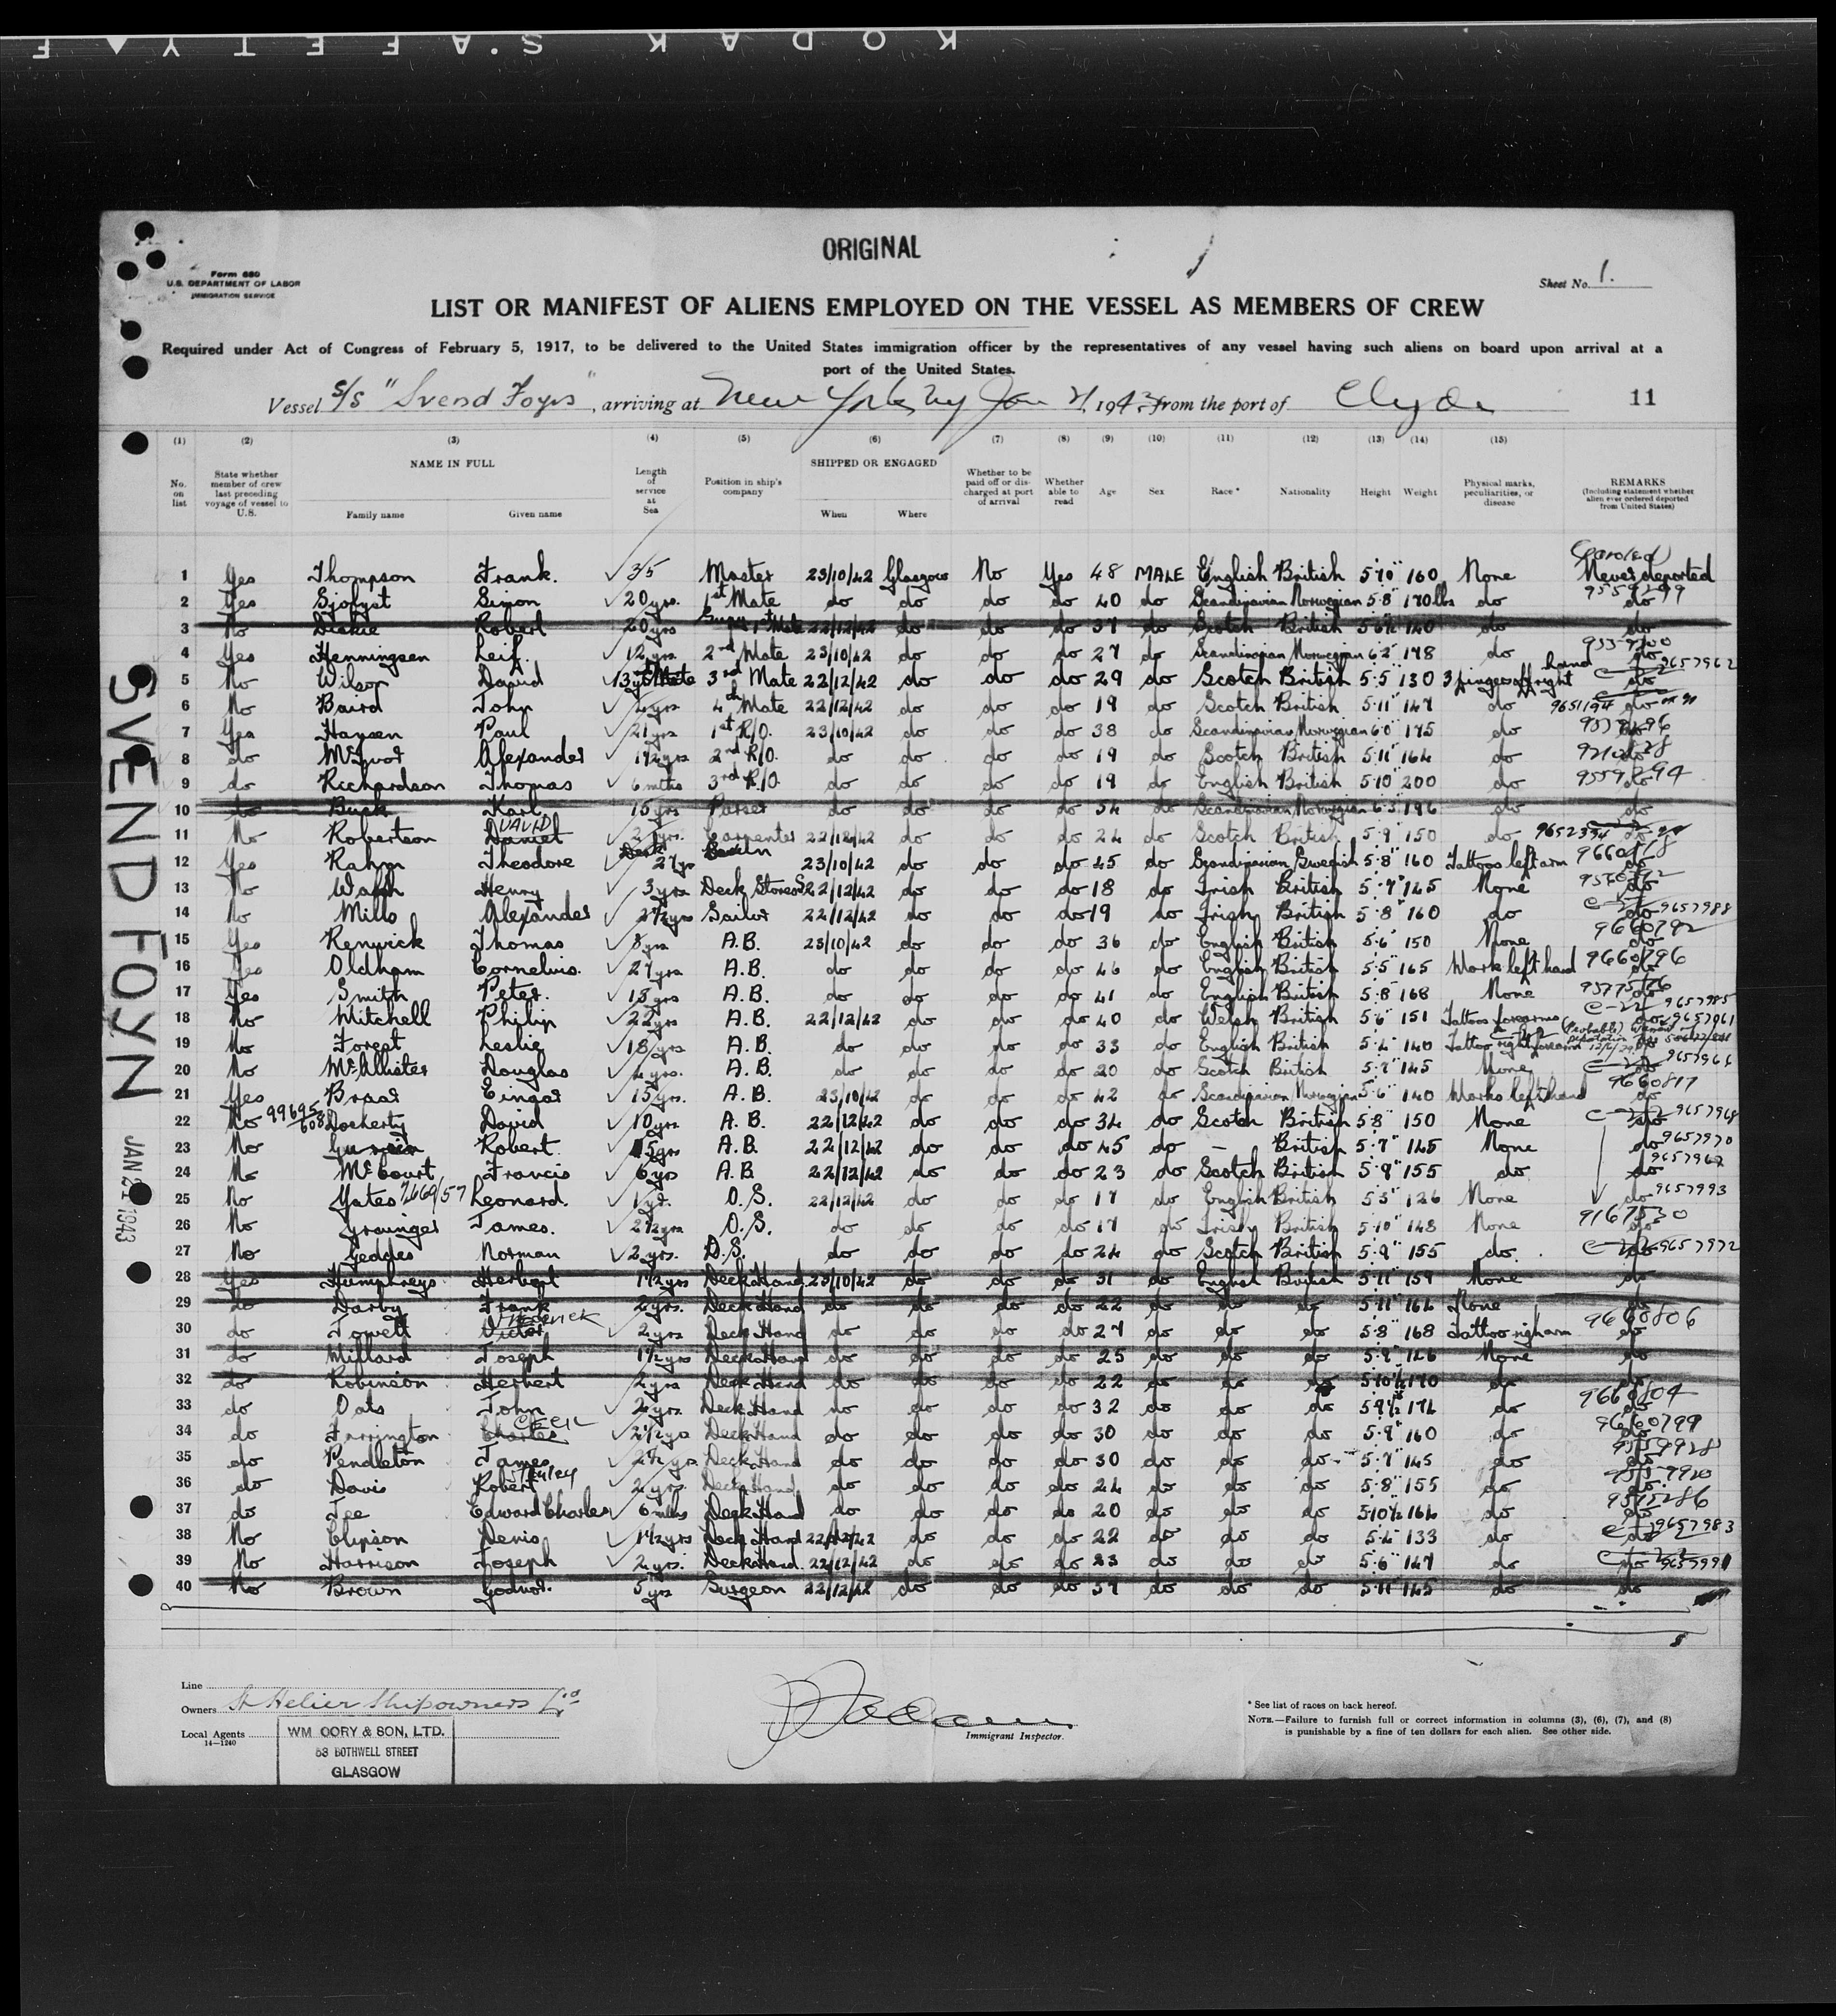 KODAK SAFETY F
ORIGINAL
Form 680
U.S. DEPARTMENT OF LABOR
IMMIGRATION SERVICE
Sheet No. 1.
LIST OR MANIFEST OF ALIENS EMPLOYED ON THE VESSEL AS MEMBERS OF CREW
Required under Act of Congress of February 5, 1917, to be delivered to the United States immigration officer by the representatives of any vessel having such aliens on board upon arrival at a
port of the United States.
Vessel S/S "Svend Foyn", arriving at New York Ny Jan 21, 1943, from the port of Clyde 11
(1) (2) (3) (4) (5) (6) (7) (8) (9) (10) (11) (12) (13) (14) (15)
No. on list State whether member of crew last preceding voyage of vessel to U.S. NAME IN FULL Family name Given name Length of service at Sea Position in ship's company SHIPPED OR ENGAGED When Where Whether to be paid off or discharged at port of arrival Whether able to read Age Sex Race* Nationality Height Weight Physical marks, peculiarities, or disease REMARKS (Including statement whether alien ever ordered deported from United States)
(Paroled)
1 Yes Thompson Frank. 35 Master 23/10/42 Glasgow No Yes 48 MALE English British 5·10" 160 None Never deported
2 Yes Sjofyst Simon 20 yrs. 1st Mate do do do do 40 do Scandinavian Norwegian 5·8" 170 lbs do do
3 No Dickie Robert 20 yrs Supy 1st Mate 22/12/42 do do do 37 do Scotch British 5·6½ 140 do do
4 Yes Henningsen Leif. 12 yrs. 2nd Mate 23/10/42 do do do 27 do Scandinavian Norwegian 6·2" 178 do do
5 No Wilson David 13 yrs 3rd Mate 22/12/42 do do do 29 do Scotch British 5·5 130 3 fingers off right hand do 9657962
6 No Baird John 4 yrs 4th Mate 22/12/42 do do do 19 do Scotch British 5·11" 147 do 9651194 do
7 Yes Hansen Paul 21 yrs 1st R/O. 23/10/42 do do do 38 do Scandinavian Norwegian 6·0" 175 do do
8 do McIvor Alexander 1½ yrs 2nd R/O. do do do do 19 do Scotch British 5·11" 164 do do
9 do Richardson Thomas 6 mths 3rd R/O do do do do 19 do English British 5·10" 200 do do
10 do Busk Karl 15 yrs Purser do do do do 54 do Scandinavian Norwegian 6·3" 196 do do
11 No Robertson Daniel DAVID 2 yrs. Carpenter 22/12/42 do do do 24 do Scotch British 5·9" 150 do 9652394 do
12 Yes Rahm Theodore 27 yr 23/10/42 do do do 45 do Scandinavian Swedish 5·8" 160 Tattoos left arm do
13 No Walsh Henry 3 yrs Deck Stores 22/12/42 do do do 18 do Irish British 5·7" 145 None do
14 No Mills Alexander 2½ yrs Sailor 22/12/42 do do do 19 do Irish British 5·8" 160 do do 9657988
15 Yes Renwick Thomas 8 yrs A.B. 23/10/42 do do do 36 do English British 5·6" 150 None 9660792 do
16 Yes Oldham Cornelius. 27 yrs A.B. do do do do 46 do English British 5·5" 165 Mark left hand 9660796 do
17 Yes Smith Peter. 18 yrs A.B. do do do do 41 do English British 5·8" 168 None do
18 No Mitchell Philip 22 yrs A.B. 22/12/42 do do do 40 do Welsh British 5·6" 151 Tattoo forearms do 9657985
19 No Forest Leslie 18 yrs A.B. do do do do 33 do English British 5·4" 140 Tattoo right forearm 9657961
20 No McAllister Douglas 4 yrs. A.B. do do do do 20 do Scotch British 5·7" 145 None do 9657966
21 Yes Braar Eingar 15 yrs. A.B. 23/10/42 do do do 42 do Scandinavian Norwegian 5·6" 140 Marks left hand 9660817 do
22 No Docherty David 10 yrs. A.B. 22/12/42 do do do 34 do Scotch British 5·8" 150 None do 9657968
23 No Robert 15 yrs A.B. 22/12/42 do do do 45 do - British 5·7" 145 None do 9657970
24 No McCourt Francis 6 yrs A.B. 22/12/42 do do do 23 do Scotch British 5·9" 155 do do 9657969
25 No Yates Leonard. 1 yr. O.S. 22/12/42 do do do 17 do English British 5·5" 126 None do 9657993
26 No Grainger James. 2½ yrs O.S. do do do do 17 do Irish British 5·10" 148 None 9167530 do
27 No Geddes Norman 2 yrs. O.S. do do do do 24 do Scotch British 5·9" 155 do. do 9657972
28 Yes Humphreys Herbert 1½ yrs Deck Hand 23/10/42 do do do 31 do English British 5·11" 159 None do
29 do Darby Frank 2 yrs. Deck Hand do do do do 22 do do do 5·11" 164 None do
30 do Jowett Victor FREDERICK 2 yrs Deck Hand do do do do 27 do do do 5·8" 168 Tattoo righarm 9660806 do
31 do Millard Joseph 1½ yrs Deck Hand do do do do 25 do do do 5·9" 146 None do
32 do Robinson Herbert 2 yrs Deck Hand do do do do 22 do do do 5·10½ 170 do do
33 do Oats John 2 yrs. Deck Hand do do do do 32 do do do 5·9½ 174 do 9660804 do
34 do Farrington Charles CECIL 2½ yrs Deck Hand do do do do 30 do do do 5·9" 160 do 9660799 do
35 do Pendleton James 2½ yrs Deck Hand do do do do 30 do do do 5·7" 145 do 9559928 do
36 do Davis Robert Stanley 2 yrs. Deck Hand do do do do 24 do do do 5·8" 155 do do
37 do Lee Edward Charles 6 mths Deck Hand do do do do 20 do do do 5·10½ 164 do 9575286 do
38 No Clipson Denis 1½ yrs Deck Hand 22/12/42 do do do 22 do do do 5·4" 133 do do 9657983
39 No Harrison Joseph 2 yrs. Deck Hand. 22/12/42 do do do 23 do do do 5·6" 147 do do 9657991
40 No Brown 5 yrs Surgeon 22/12/42 do do do 57 do do do 5·11" 145 do do
SVEND FOYN
JAN 21 1943
Line
Owners St Helier Shipowners Ltd
Local Agents WM CORY & SON, LTD.
14—1240
53 BOTHWELL STREET
GLASGOW
Immigrant Inspector.
* See list of races on back hereof.
NOTE.—Failure to furnish full or correct information in columns (3), (6), (7), and (8)
is punishable by a fine of ten dollars for each alien. See other side.